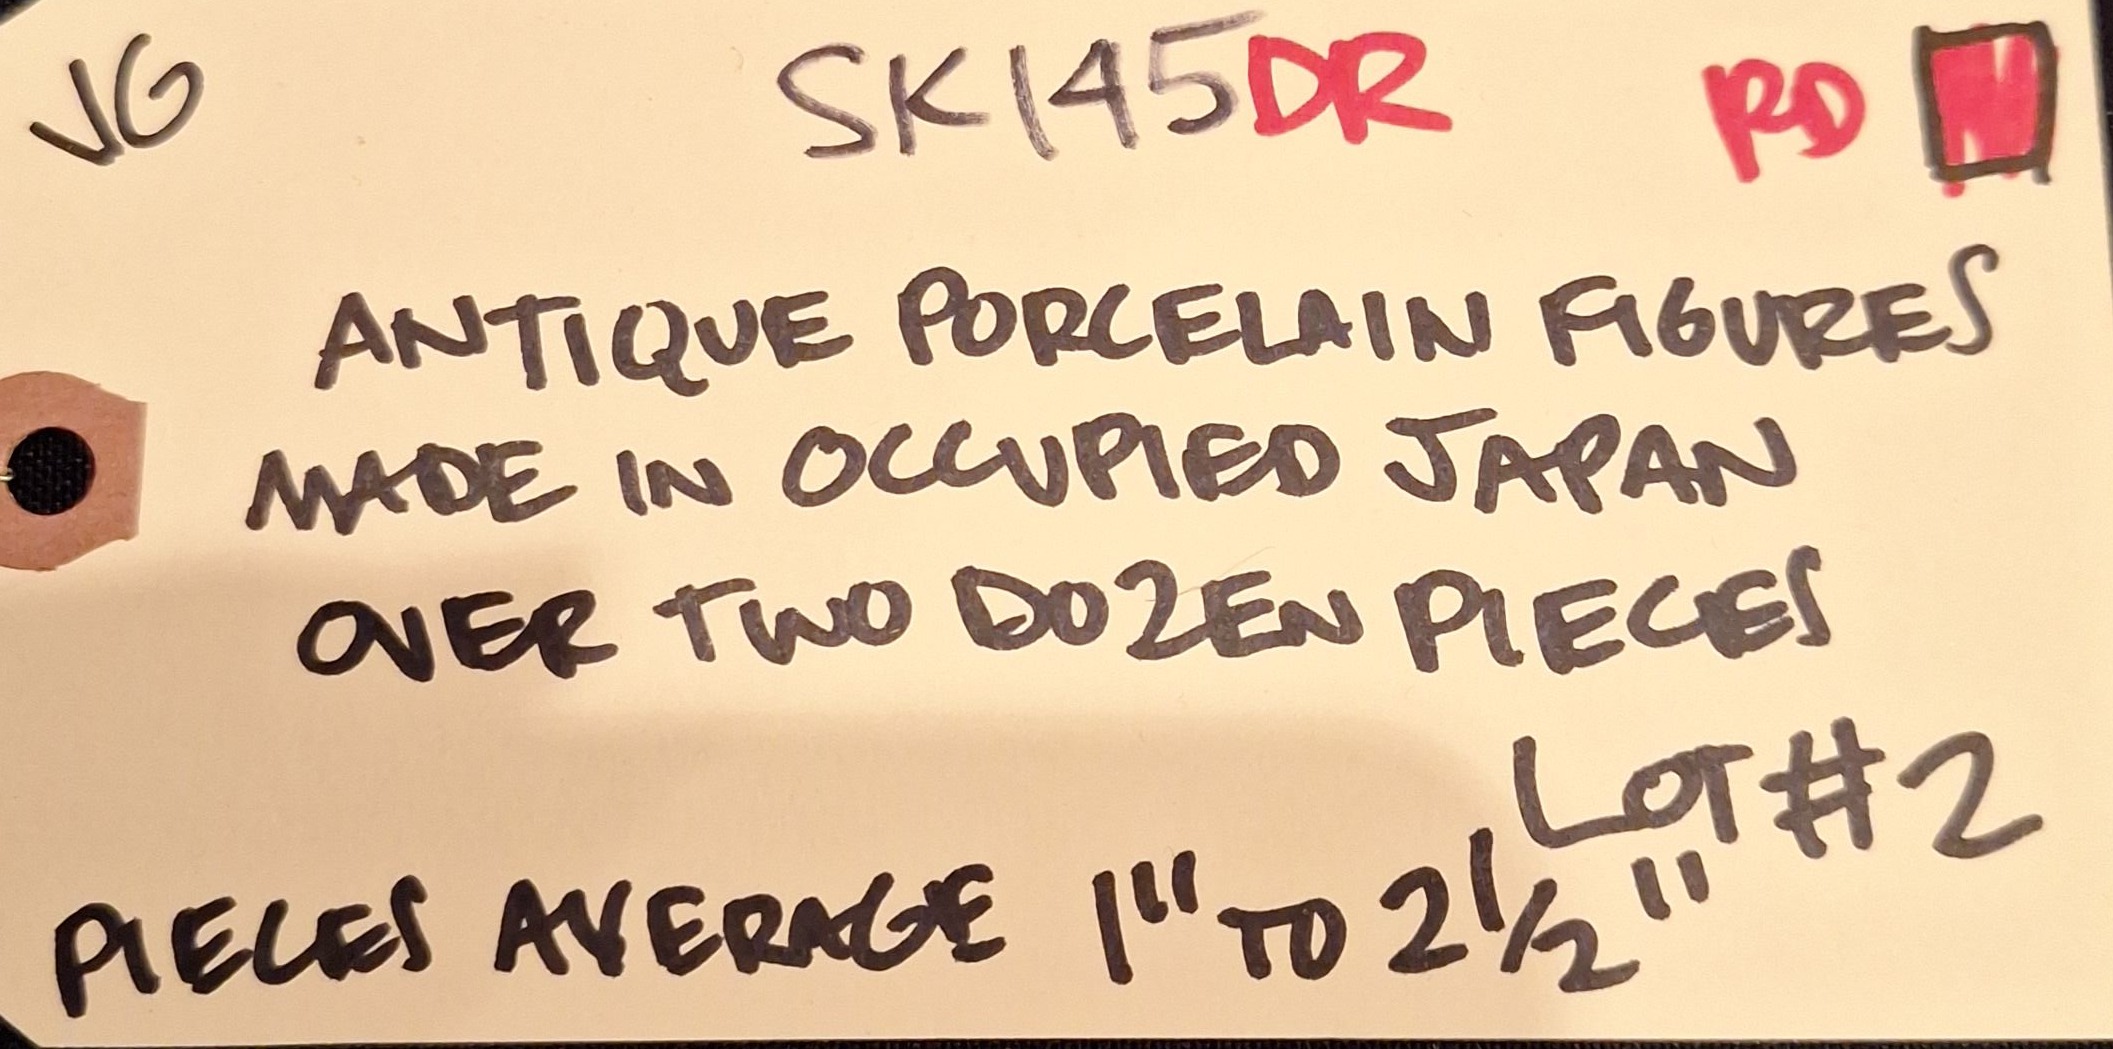 VG SK145DR RD
ANTIQUE PORCELAIN FIGURES
MADE IN OCCUPIED JAPAN
OVER TWO DOZEN PIECES
LOT #2
PIECES AVERAGE 1" TO 2 1/2"